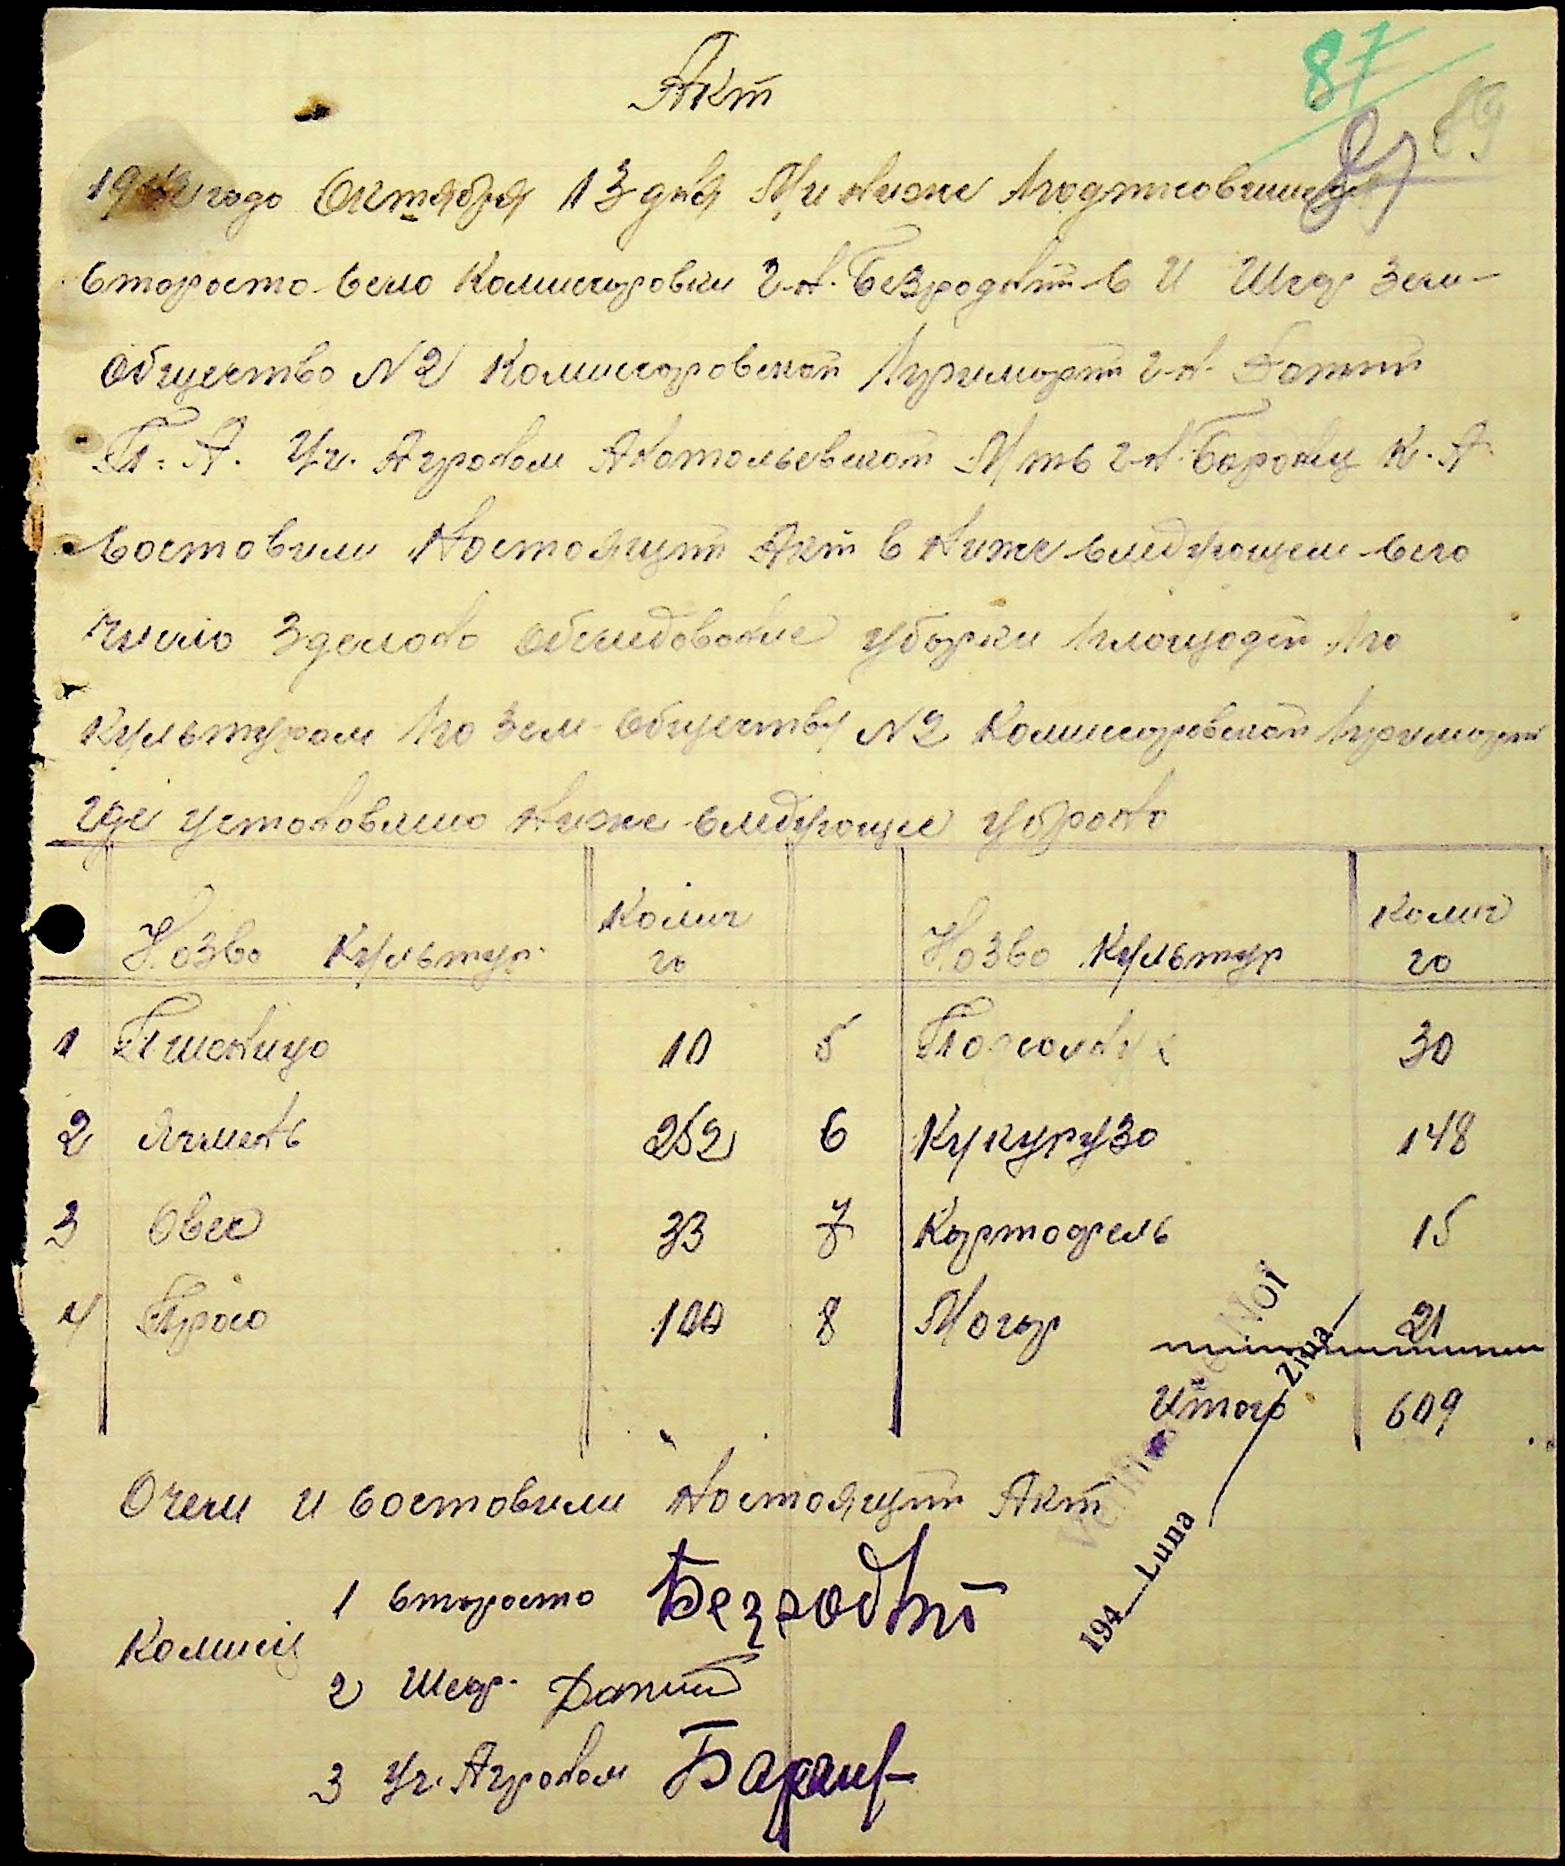 Акт
87
89
года Октября 13 дня Ми Ниже Подписовшиеся
Староста Села Комиссаровки г-н. Безродний С И Шеф Зем-
общества №2 Комиссаровской Примарии г-н.
П. А. Уч. Агроном Анатольевской Мтс г-н. К. А.
Составили Настоящий Акт в Ниже следующем сего
число Зделано обследование уборки площадей по
Культурам По Зем-обществу №2 Комиссаровской Примарии
где установлено Ниже следующее убрано
Назва Культур Колич га Назва Культур Колич га
1 Пшеница 10 5 Подсолнух 30
2 Ячмень 252 6 Кукуруза 148
3 Овес 33 7 Картофель 15
4 Просо 100 8 Могар 21
Итого 609
О чем и составили Настоящий Акт
Комисия
1 Староста Безродний
2 Шеф.
3 Уч. Агроном
194 Luna Ziua